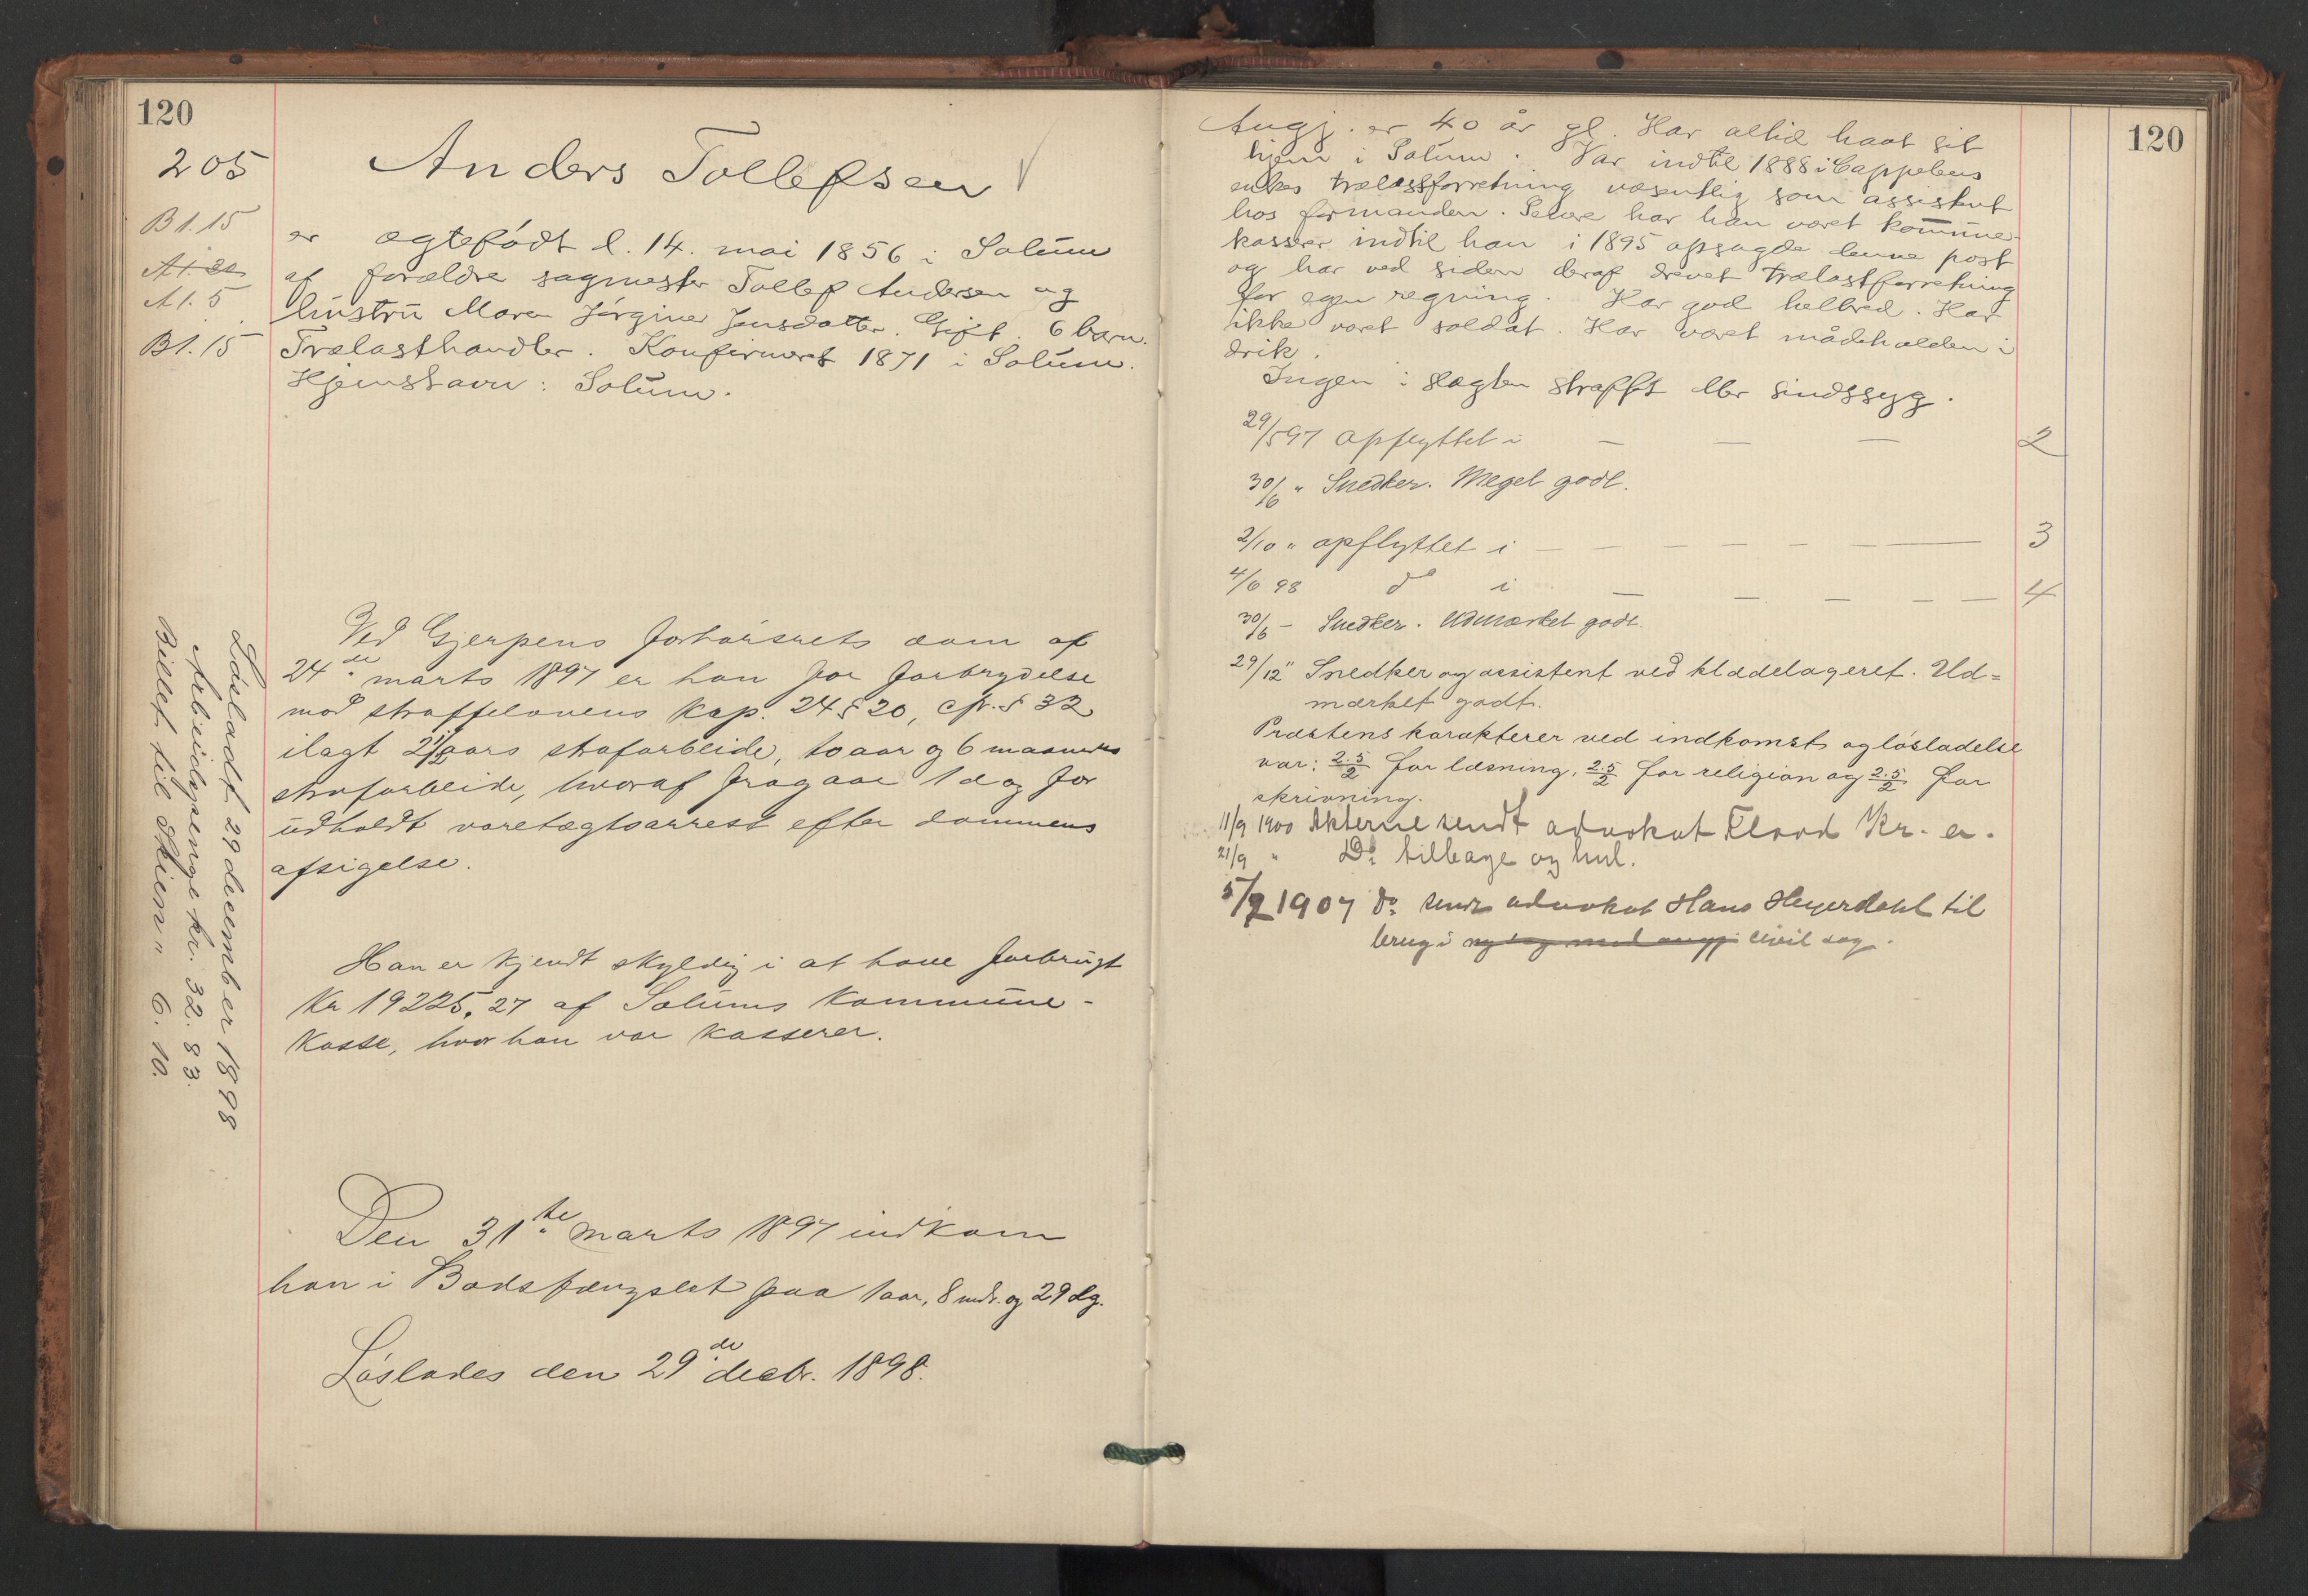 120
205
Anders Tollefsen
B1.15
A1.20
A1.5
B1.15
er ægtefødt d. 14. mai 1856 i Solum
af forældre sagmester Tollef Andersen og
hustru Maren Jørgine Jensdatter. Gift. 6 barn.
Trælasthandler. Konfirmeret 1871 i Solum.
Hjemstavn: Solum.
Ved Gjerpens forhørsrets dom af
24de marts 1897 er han for forbrydelse
mod straffelovens Kap. 24 § 20, cfr. § 32
ilagt 2 1/2 aars strafarbeide, to aar og 6 maaneders
strafarbeide, hvoraf fragaar 1 dag for
udholdt varetægtsarrest efter dommens
afsigelse.
Han er kjendt skyldig i at have forbrugt
Kr 19225,27 af Solums Kommune-
kasse, hvor han var kasserer.
Den 31te marts 1897 indkom
han i Bodsfængslet paa 1 aar, 8 mdr. og 29 dg.
Løslades den 29de decbr. 1898.
Løsladt 29 december 1898
Arbeidspenge kr. 32.83.
Billet til Skien " 6.10.
120
Angj. er 40 år gl. Har altid havt sit
hjem i Solum. Var indtil 1888 i Cappelens
enkes trælastforretning væsentlig som assistent
hos formanden. Senere har han været kommune-
kasserer indtil han i 1895 opsagde denne post
og har ved siden deraf drevet trælastforretning
for egen regning. Har god helbred. Har
ikke været soldat. Har været mådeholden i
drik.
Ingen i slægten straffet eller sindssyg.
29/5 97 opflyttet i — — — 2
30/6 " Snedker. Meget godt.
2/10 " opflyttet i — — — — — — 3
4/6 98 do i — — — — — 4
30/6 - Snedker. Udmærket godt.
29/12 " Snedker og assistent ved klædelageret. Ud=
mærket godt.
Præstens karakterer ved indkomst og løsladelse
var: 2.5/2 for læsning, 2.5/2 for religion og 2.5/2 for
skrivning.
11/9 1900 Akterne sendt advokat Flood Kr-a.
21/9 " Do tilbage og hul.
5/2 1907 Do sendt advokat Hans Heyerdahl til
brug i ny sag mod angj. civil sag.